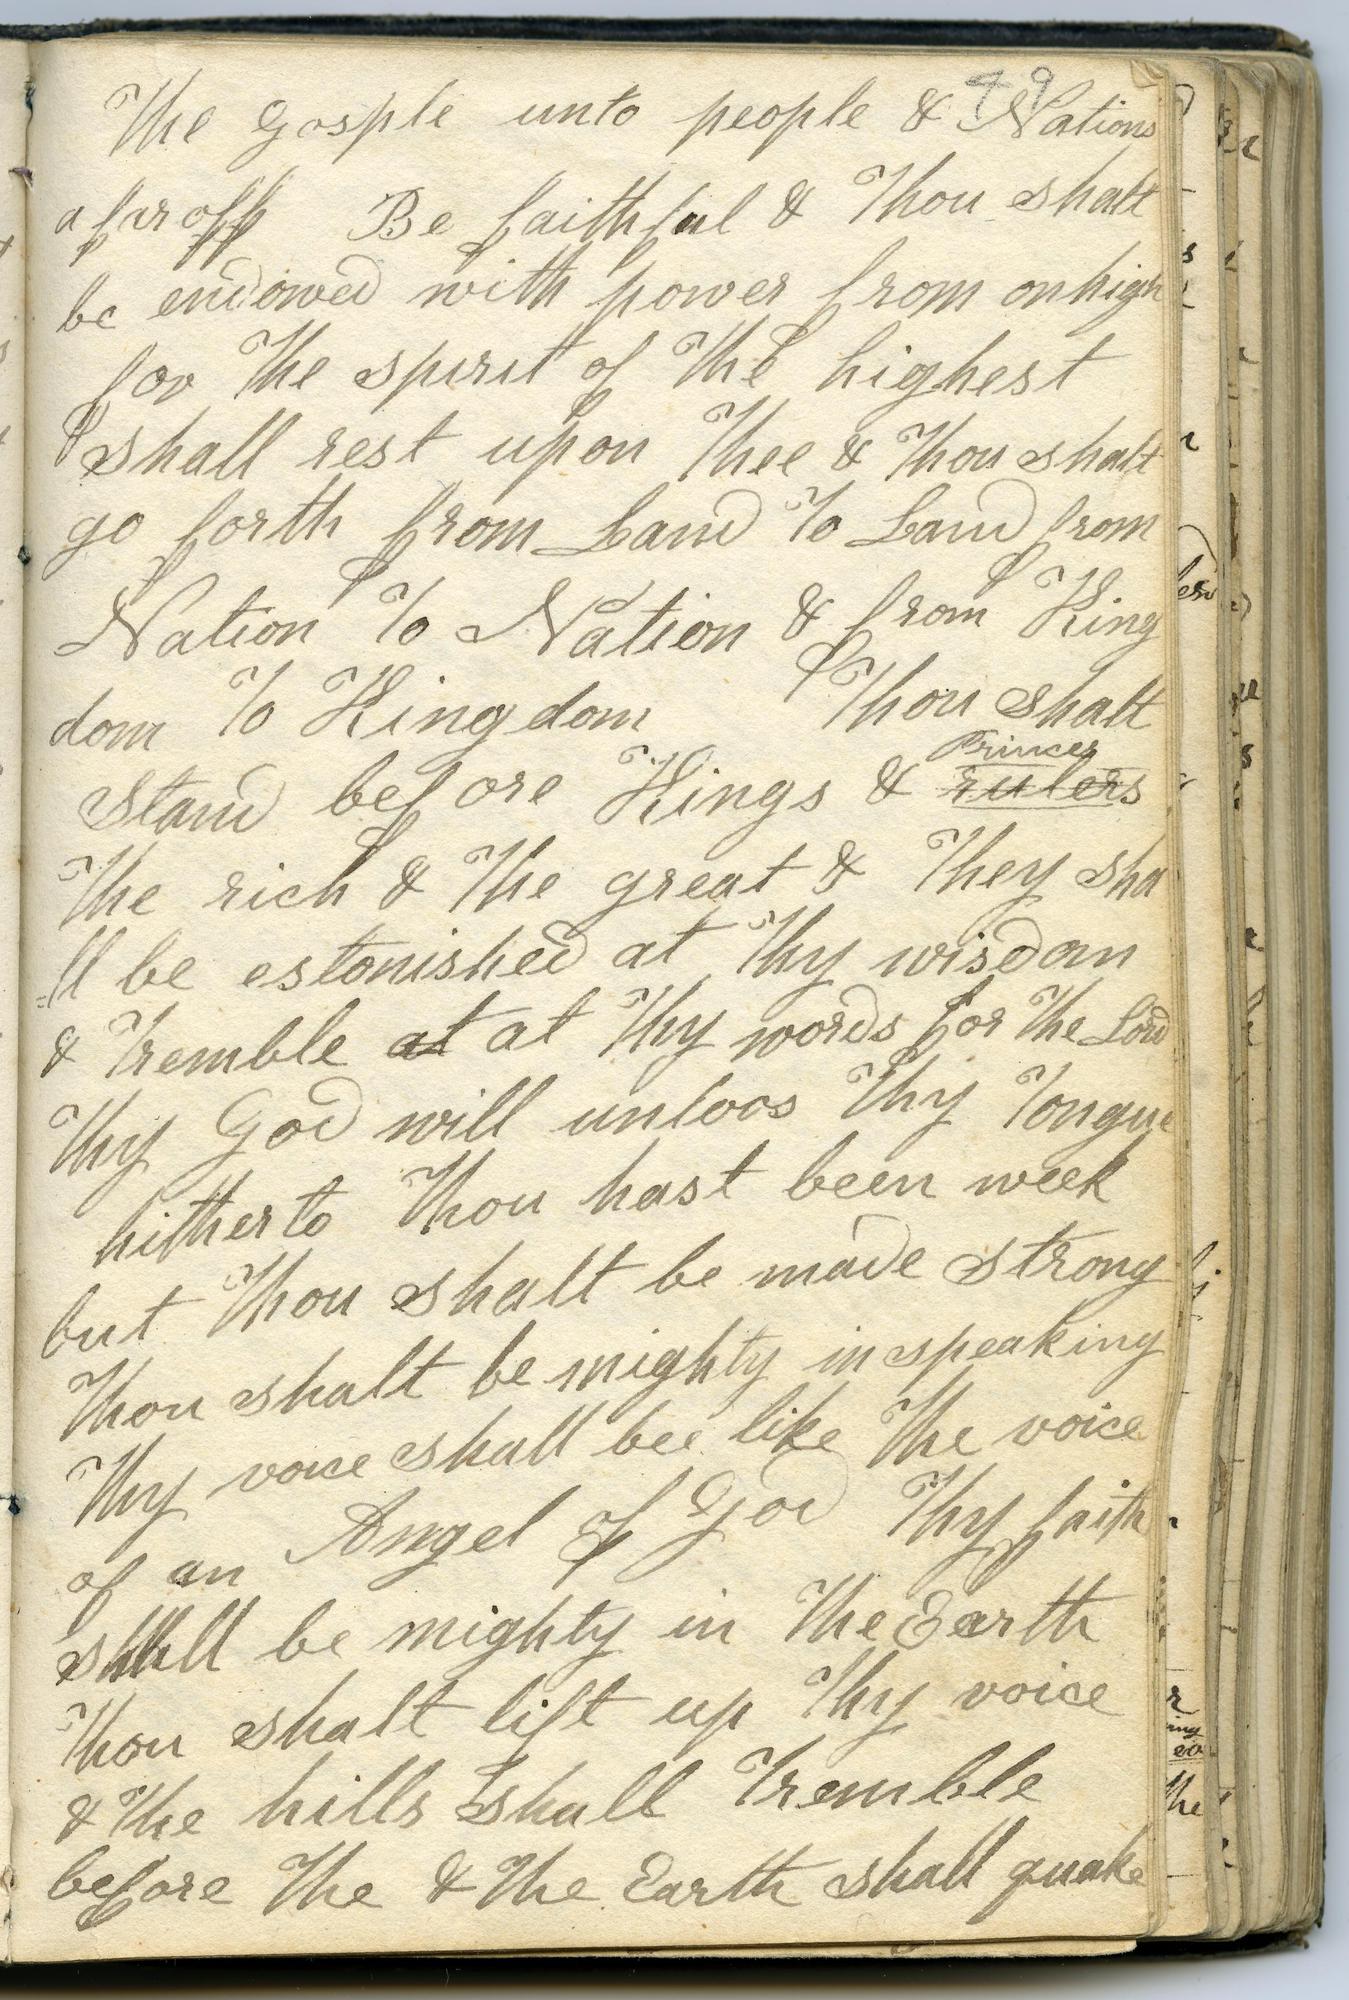 49
The Gosple unto people & Nations
afar off Be faithful & Thou shalt
be endowed with power from on high
for The spirit of The highest
shall rest upon Thee & Thou shalt
go forth from Land To Land from
Nation To Nation & from King
dom To Kingdom Thou shalt
Princes
Stand before Kings & rulers
The rich & The great & They sha
=ll be estonished at Thy wisdom
& Tremble at at Thy words for The Lord
Thy God will unloos Thy Tongue
hitherto Thou hast been week
but Thou shalt be made strong
Thou shalt be mighty in speaking
Thy voice shall bee like The voice
of an Angel of God Thy faith
shall be mighty in The Earth
Thou shalt lift up Thy voice
& The hills shall Tremble
before The & The Earth shall quake